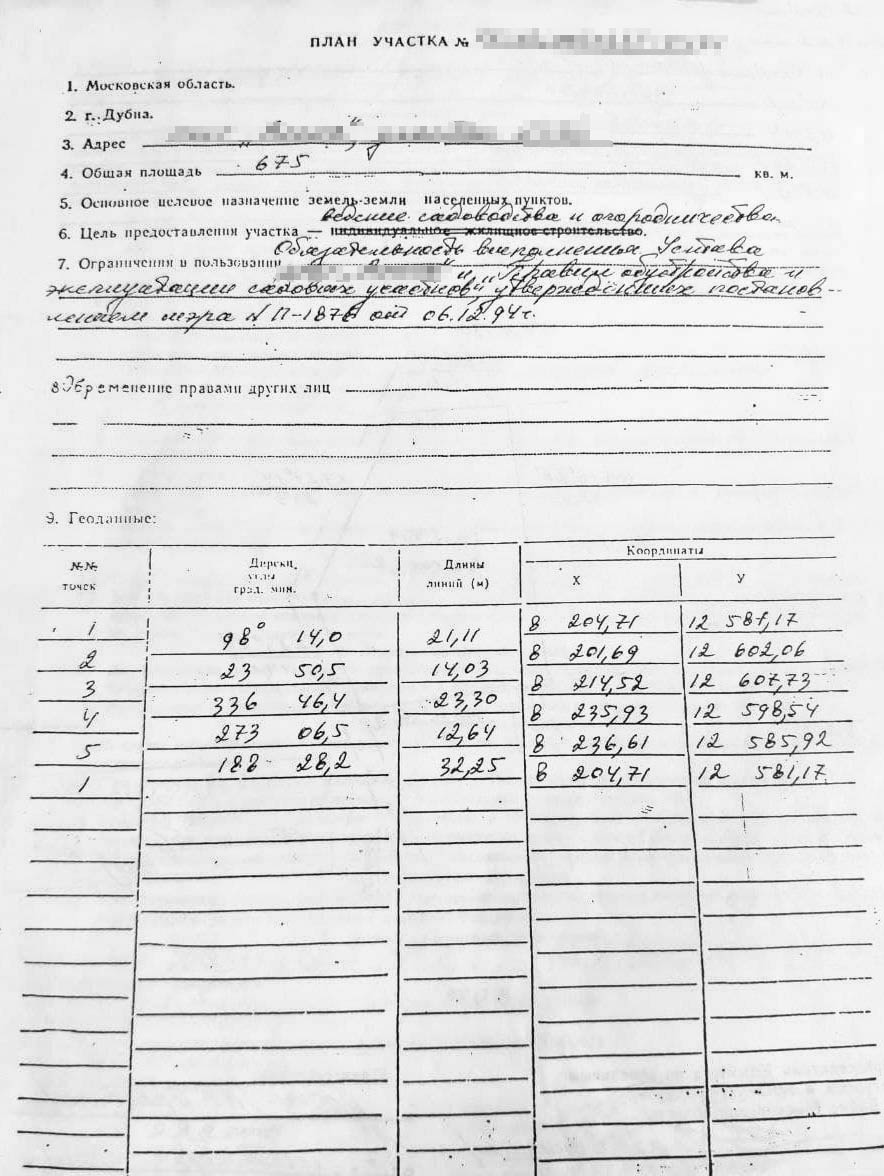 ПЛАН УЧАСТКА №
1. Московская область.
2. г. Дубна.
3. Адрес
4. Общая площадь 675 кв. м.
5. Основное целевое назначение земель-земли населенных пунктов.
ведение садоводства и огородничества
6. Цель предоставления участка — индивидуальное жилищное строительство.
Обязательность выполнения Устава
7. Ограничения в пользовании и "Правил обустройства и
эксплуатации садовых участков", утвержденных постанов-
лением мэра N П-1876 от 06.12.94г.
8 Обременение правами других лиц
9. Геоданные:
№№ точек Дирекц. углы град. мин. Длины линий (м) Координаты X У
1 98° 14,0 21,11 8 204,71 12 581,17
2 23 50,5 14,03 8 201,69 12 602,06
3 336 46,4 23,30 8 214,52 12 607,73
4 273 06,5 12,64 8 235,93 12 598,54
5 188 28,2 32,25 8 236,61 12 585,92
1 8 204,71 12 581,17